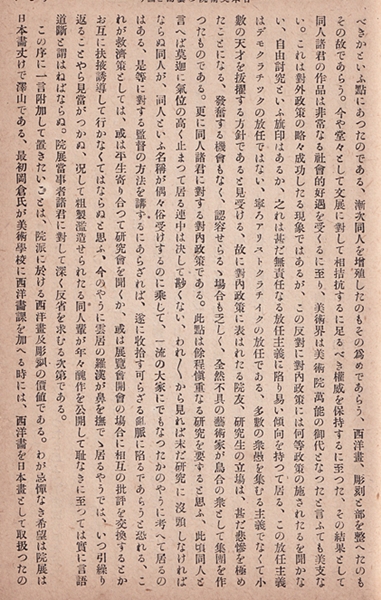 べきかといふ點にあつたのである、漸次同人を增殖したのもその爲めであらう、西洋畫、彫刻と部を整へたのも
その故であらう。今や堂々として文展に對して相拮抗するに足るべき權威を保持するに至つた、その結果として
同人諸君の作品は非常なる社會的好遇を受くるに至り、美術界は美術院萬能の御代となつたと言ふても美支な
い。これは對外政策の略々成功したる現象ではあるが、この反對に對内政策には何等政策の施されたるを聞かな
い、自由討究といふ旗印はあるが、之れは甚だ無責任なる放任主義に陷り易い傾向を持つて居る、この放任主義
はデモクラチツクの放任ではない、寧ろアリストクラチイクの放任である、多數の衆愚を集むる主義でなくて小
數の天才を拔擢する方針であると見受ける、故に對内政策に表はれたる院友、研究生の立塲は、甚だ悲慘を極め
たことになる、發奮する機會もなく、認容せらるゝ塲合も乏しく、全然不具の藝術家が烏合の衆として集團を作
つたものである。更に同人諸君に對する對内政策である。此點は餘程愼重なる研究を要すると思ふ、此頃同人と
言へば莫迦に氣位の高く止まつて居る連中は決して尠くない、われ／＼から見れば未だ研究に沒頭しなければ
ならぬ同人が、同人といふ名稱が偶々俗受けするのに乘して、一流の大家にでもなつたかのやうに考へて居るの
はある、是等に對する監督の方法を講するにあらざれば、遂に收拾す可らざる亂脈に陷るであらうと恐れる、こ
れが救濟策としては、或は平生寄り合つて研究會を開くか、或は展覽會開會の塲合に相互の批評を交換するとか
お互に扶掖誘導して行かなくてはならぬと思ふ、今のやうに雲居の羅漢が鼻を撫でゝ居るやうでは、いつ引繰り
返ることやら見當がつかぬ、况して粗製濫造せられたる同人輩が年々醜作を公開して耻なきに至つては實に言語
道斷と謂はねばならぬ。院展當事者諸君に對して深く反省を求むる次第である。
この序に一言附加して置きたいことは、院派に於ける西洋畫及彫刻の價値である。わが忌憚なき希望は院展は
日本畫丈けで澤山である、最初岡倉氏が美術學校に西洋畫課を加へる時には、西洋畫を日本畫として取扱つたの